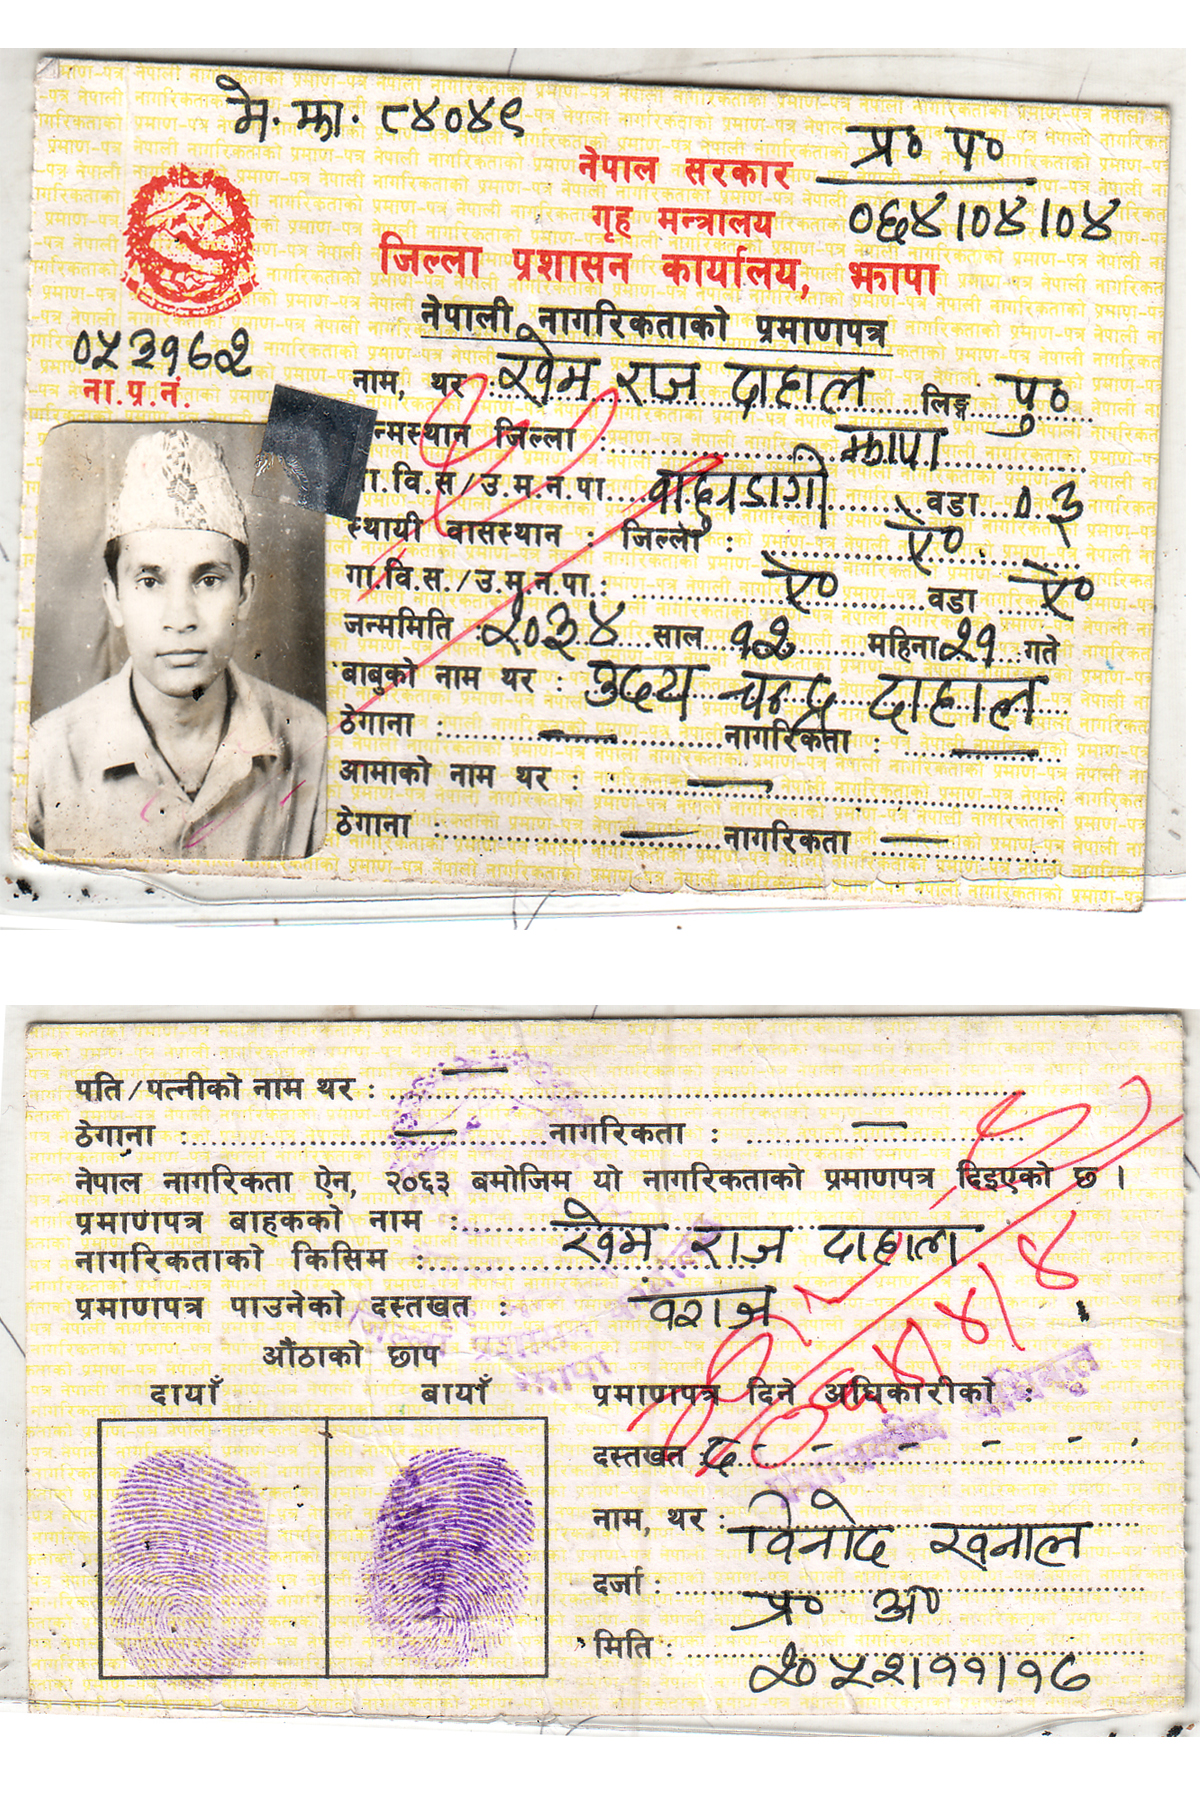 मे. झा. ८४०४९
प्र० प०
०६४।०४।०४
नेपाल सरकार
गृह मन्त्रालय
जिल्ला प्रशासन कार्यालय, झापा
नेपाली नागरिकताको प्रमाणपत्र
ना.प्र.नं.
नाम, थर : खेम राज दाहाल लिङ्ग पु०
न्मस्थान जिल्ला : झापा
गा.वि.स/उ.म.न.पा. वाहुनडागी वडा ०३
स्थायी वासस्थान : जिल्ला : ऐ०
गा.वि.स./उ.म.न.पा.: ऐ० वडा ऐ०
जन्ममिति : २०३४ साल १२ महिना २१ गते
बाबुको नाम थर : उदय चन्द्र दाहाल
ठेगाना : — नागरिकता : —
आमाको नाम थर : —
ठेगाना : — नागरिकता —
पति/पत्नीको नाम थर : —
ठेगाना : — नागरिकता : —
नेपाल नागरिकता ऐन, २०६३ बमोजिम यो नागरिकताको प्रमाणपत्र दिइएको छ ।
प्रमाणपत्र बाहकको नाम : खेम राज दाहाल
नागरिकताको किसिम : वंशज
प्रमाणपत्र पाउनेको दस्तखत :
औंठाको छाप
दायाँ बायाँ
प्रमाणपत्र दिने अधिकारीको :
दस्तखत द. - - - - -
नाम, थर : विनोद खनाल
दर्जा : प्र० अ०
मिति : २०५२।११।१८